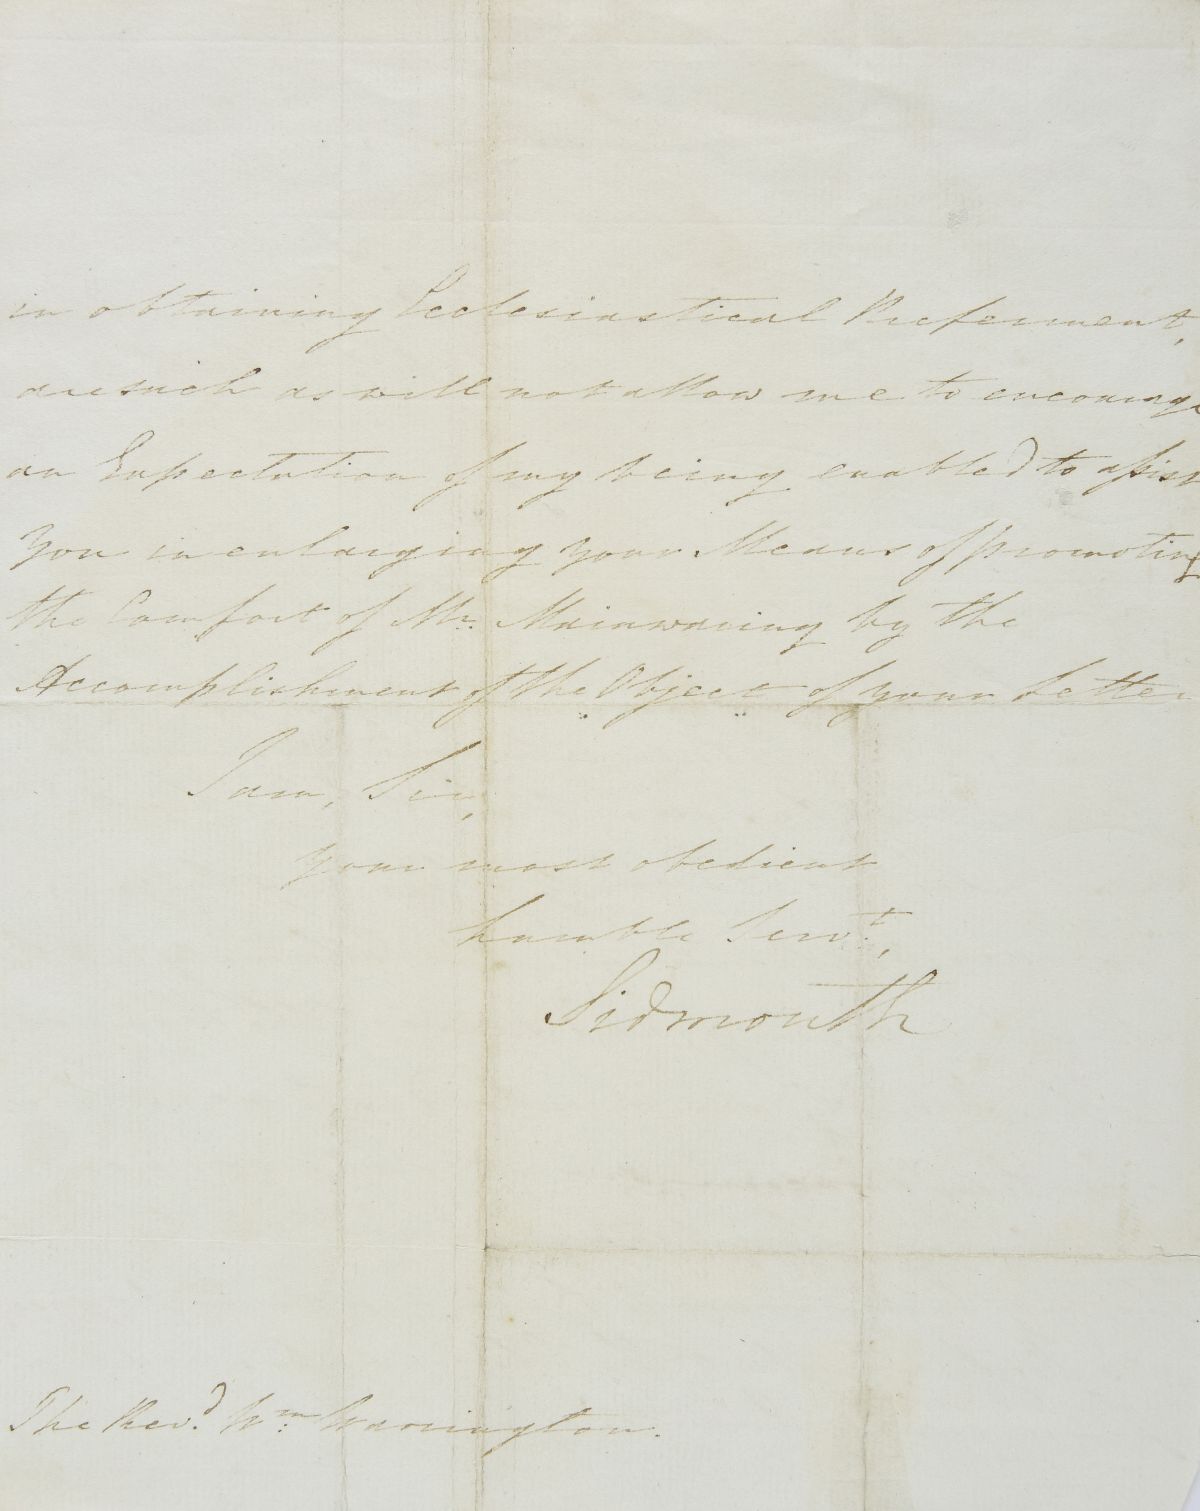 in obtaining Ecclesiastical Preferment,
are such as will not allow me to encourage
an Expectation of my being enabled to assist
you in enlarging your Means of promoting
the Comfort of Mr. Mainwaring by the
Accomplishment of the Object of your Letter
I am, Sir,
your most obedient
humble Servt.,
Sidmouth
The Revd. Wm. Warrington.